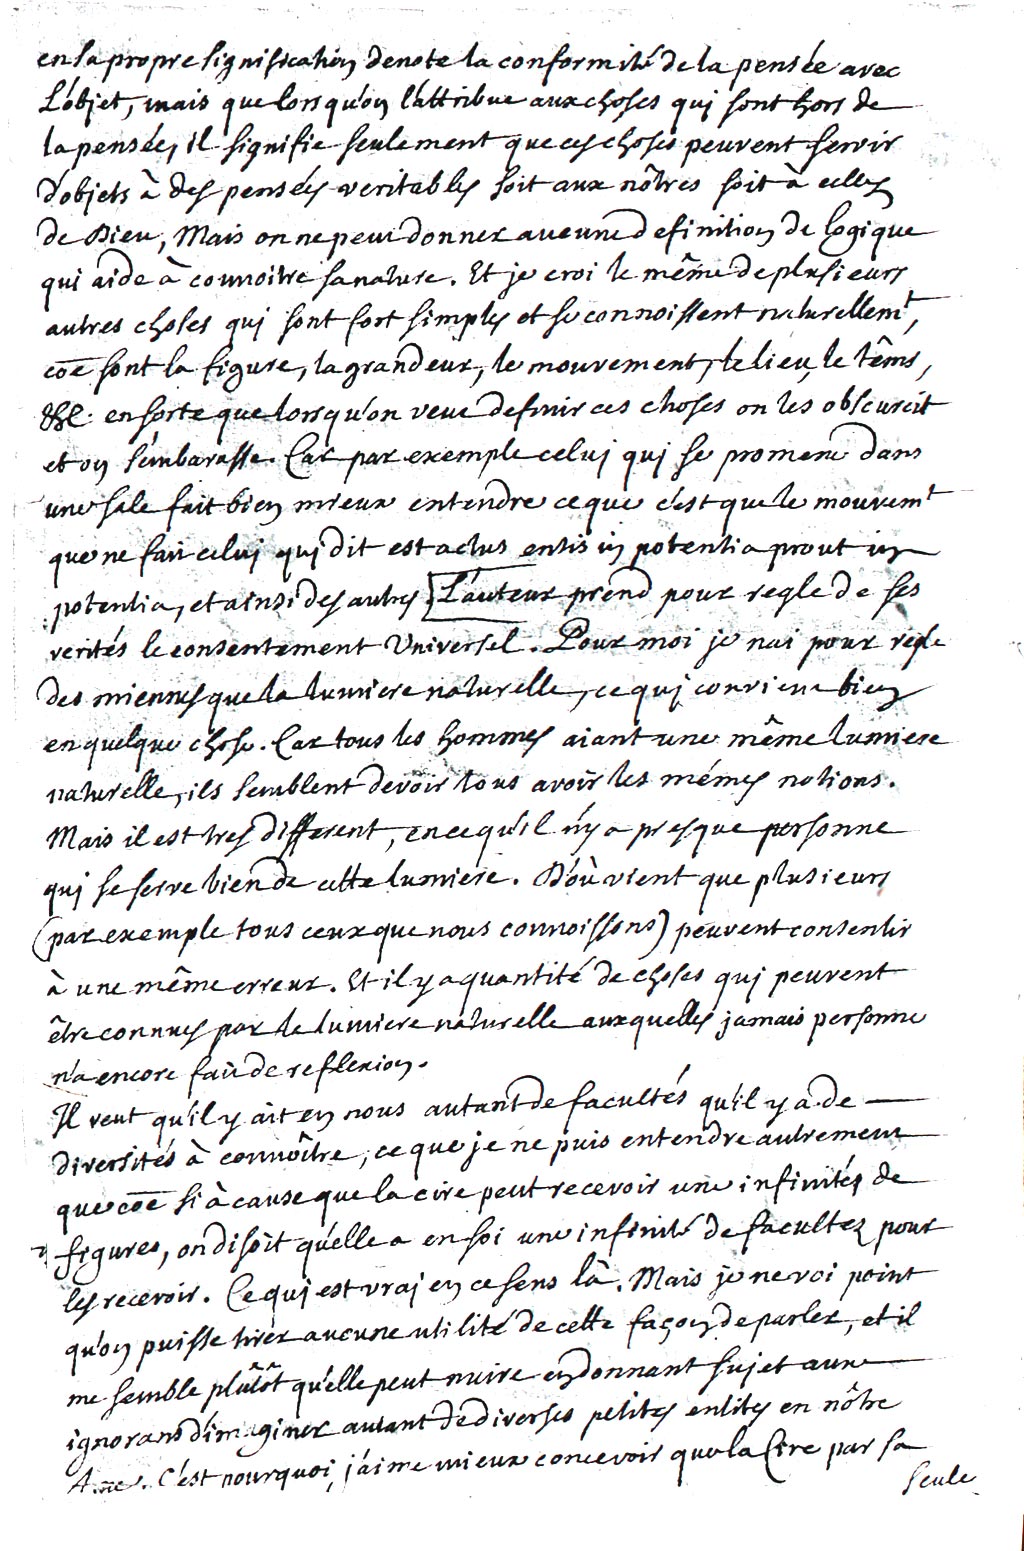 en sa propre signification denote la conformité de la pensée avec
L'objet, mais que lorsqu'on l'attribue aux choses qui sont hors de
la pensée, il signifie seulement que ces choses peuvent servir
d'objets à des pensées veritables soit aux nôtres soit à celles
de Dieu, Mais on ne peut donner aucune definition de Logique
qui aide à connoitre sa nature. Et je croi le même de plusieurs
autres choses qui sont fort simples et se connoissent naturellemt,
cōe sont la figure, la grandeur, le mouvement, le lieu, le têms,
&c. en sorte que lorsqu'on veut definir ces choses on les obscurcit
et on s'embarasse. Car par exemple celui qui se promene dans
une sale fait bien mieux entendre ce que c'est que le mouvemt
que ne fait celui qui dit est actus entis in potentia prout in
potentia, et ainsi des autres. [L'auteur prend pour regle de ses
verités le consentement Universel. Pour moi je n'ai pour regle
des miennes que la lumiere naturelle, ce qui convient bien
en quelque chose. Car tous les hommes aiant une même lumiere
naturelle, ils semblent devoir tous avoir les mémes notions.
Mais il est tres different, en ce qu'il n'y a presque personne
qui se serve bien de cette lumiere. D'où vient que plusieurs
(par exemple tous ceux que nous connoissons) peuvent consentir
à une même erreur. Et il y a quantité de choses qui peuvent
être connues par la lumiere naturelle auxquelles jamais personne
n'a encore fait de reflexion.
Il veut qu'il y ait en nous autant de facultés qu'il y a de
diversités à connoître, ce que je ne puis entendre autrement
que cōe si à cause que la cire peut recevoir une infinités de
figures, on disoit qu'elle a en soi une infinité de facultez pour
les recevoir. Ce qui est vrai en ce sens là. Mais je ne voi point
qu'on puisse tirer aucune utilité de cette façon de parler, et il
me semble plûtôt qu'elle peut nuire en donnant sujet aux
ignorans d'imaginer autant de diverses petites entites en nôtre
Ame. C'est pourquoi j'aime mieux concevoir que la Cire par sa
seule